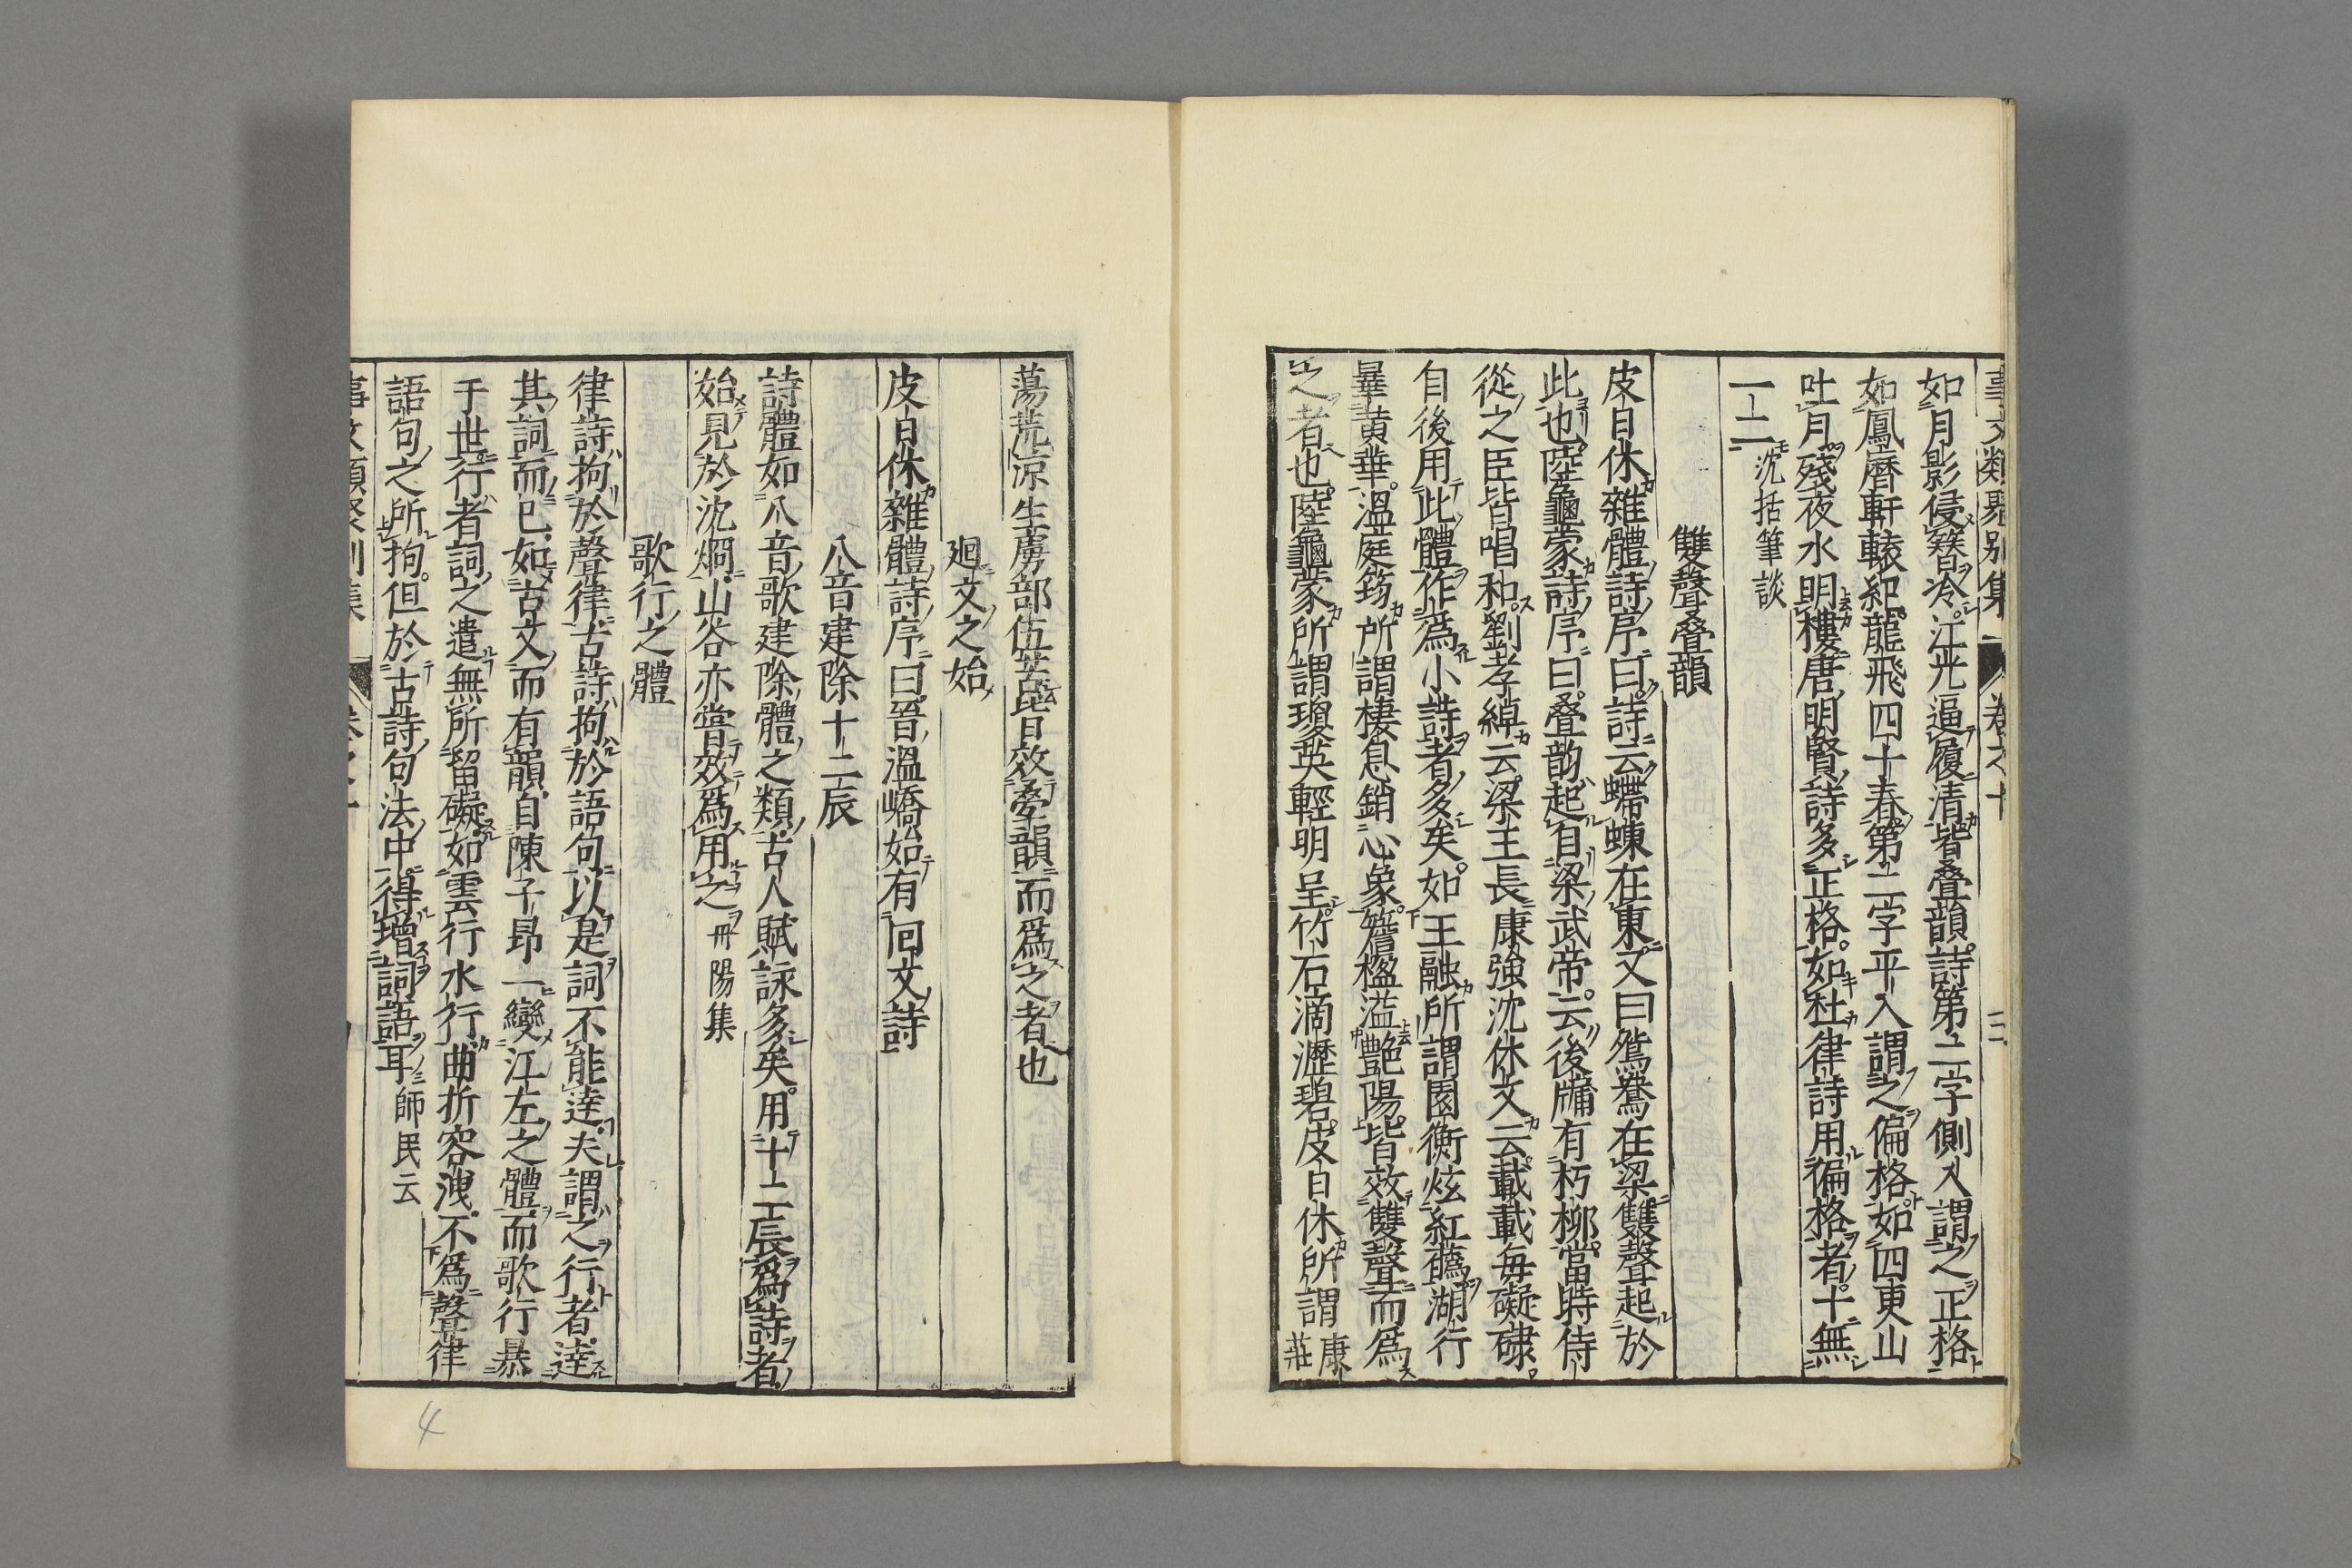 事文類聚別集 卷之十 三
如月影侵簪冷江光逼履清皆叠韻詩第二字側入謂之正格
如鳳曆軒轅紀龍飛四十春第二字平入謂之偏格如四更山
吐月殘夜水明樓唐明賢詩多正格如杜律詩用徧格者十無
一二沈括筆談
雙聲叠韻
皮日休雜體詩序曰詩云蝃蝀在東又曰鴛鴦在梁雙聲起於
此也陸龜蒙詩序曰叠韵起自梁武帝云後牖有朽柳當時侍
從之臣皆唱和劉孝綽云梁王長康強沈休文云載載每礙磍
自後用此體作爲小詩者多矣如王融所謂園衡炫紅蘤湖行
曅黃華溫庭筠所謂棲息銷心象簷楹溢艷陽皆效雙聲而爲
之者也陸龜蒙所謂瓊英輕明呈竹石滴瀝碧皮日休所謂康莊
蕩荒涼生虜部伍苦皆效疊韻而爲之者也
廻文之始
皮日休雜體詩序曰晉溫嶠始有回文詩
八音建除十二辰
詩體如八音歌建除體之類古人賦詠多矣用十二辰爲詩者
始見於沈炯山谷亦嘗效爲用之丹陽集
歌行之體
律詩拘於聲律古詩拘於語句以是詞不能達夫謂之行者達
其詞而已如古文而有韻自陳子昂一變江左之體而歌行暴
于世行者詞之遣無所留礙如雲行水行曲折容洩不爲聲律
語句之所拘但於古詩句法中得增詞語耳師民云
事文類聚別集 卷之十
4